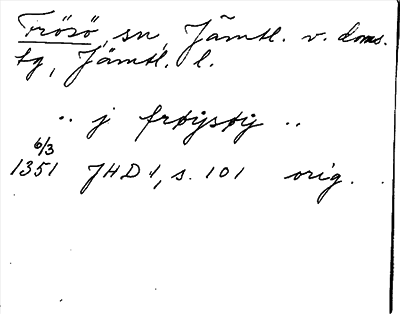 Frösö, sn, Jämtl. v. doms.
tg, Jämtl. l.
.. j frøysøy ..
6/3
1351 JHD 1, s. 101 orig.